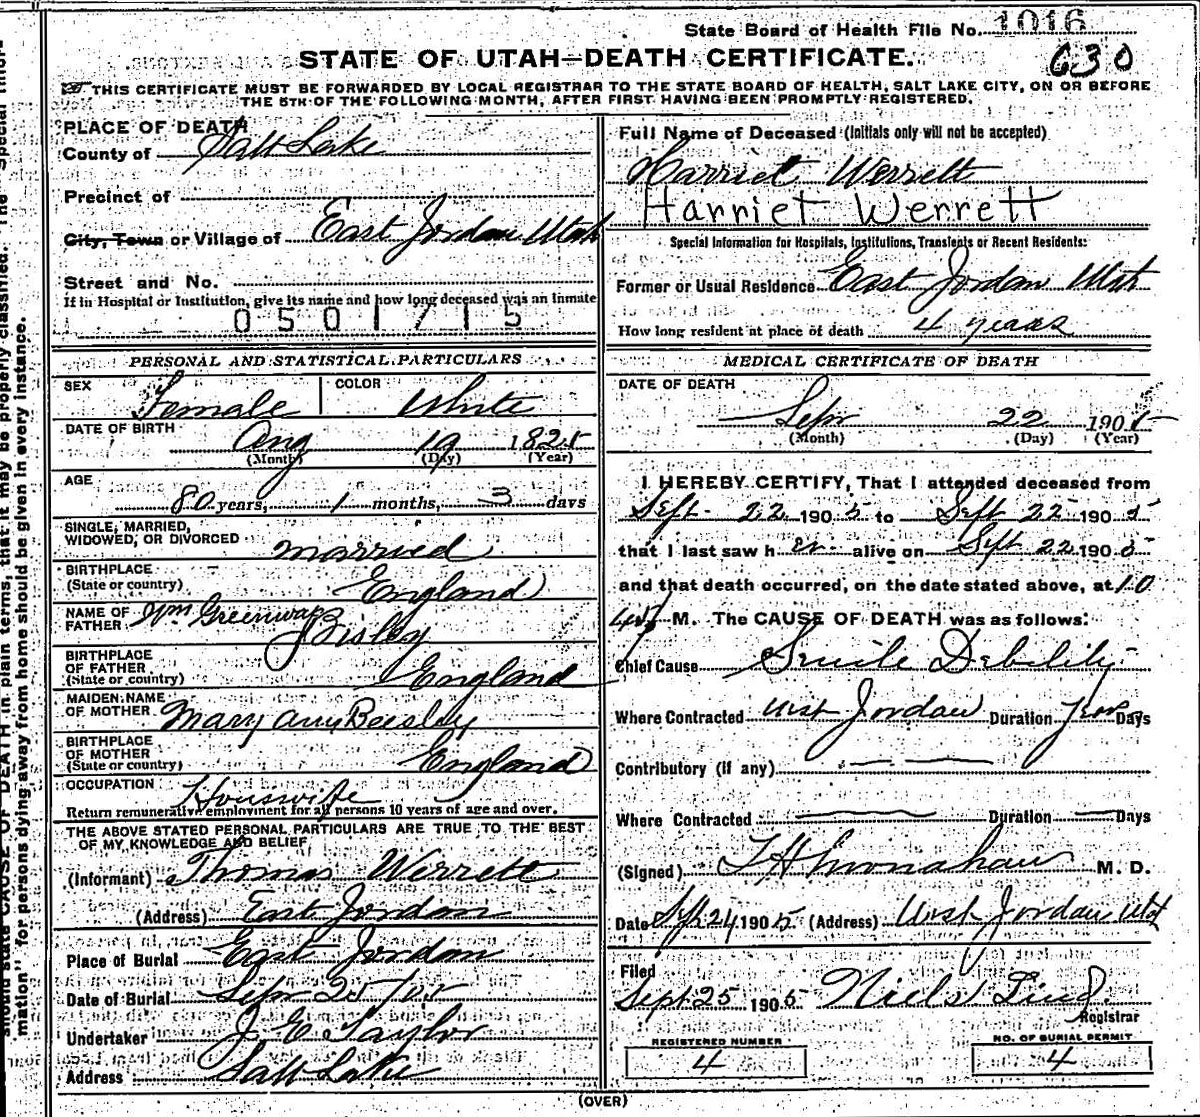 State Board of Health File No. 1016
630
STATE OF UTAH—DEATH CERTIFICATE.
THIS CERTIFICATE MUST BE FORWARDED BY LOCAL REGISTRAR TO THE STATE BOARD OF HEALTH, SALT LAKE CITY, ON OR BEFORE
THE 5TH OF THE FOLLOWING MONTH, AFTER FIRST HAVING BEEN PROMPTLY REGISTERED.
PLACE OF DEATH
County of Salt Lake
Precinct of
City, Town or Village of East Jordan Utah
Street and No.
If in Hospital or Institution, give its name and how long deceased was an inmate
0501715
PERSONAL AND STATISTICAL PARTICULARS
SEX Female COLOR White
DATE OF BIRTH Aug 19 1825
(Month) (Day) (Year)
AGE
80 years, 1 months, 3 days
SINGLE, MARRIED,
WIDOWED, OR DIVORCED married
BIRTHPLACE
(State or country) England
NAME OF
FATHER Wm Greenway Bisley
BIRTHPLACE
OF FATHER
(State or country) England
MAIDEN NAME
OF MOTHER Mary Ann Beesley
BIRTHPLACE
OF MOTHER
(State or country) England
OCCUPATION Houswife
Return remunerative employment for all persons 10 years of age and over.
THE ABOVE STATED PERSONAL PARTICULARS ARE TRUE TO THE BEST
OF MY KNOWLEDGE AND BELIEF
(Informant) Thomas Werrett
(Address) East Jordan
Place of Burial East Jordan
Date of Burial Sepr 25/05
Undertaker J. E Taylor
Address Salt Lake
Full Name of Deceased (Initials only will not be accepted)
Harriet Werrett
Harriet Werrett
Special Information for Hospitals, Institutions, Transients or Recent Residents:
Former or Usual Residence East Jordan Utah
How long resident at place of death 4 years
MEDICAL CERTIFICATE OF DEATH
DATE OF DEATH
Sepr 22 1905
(Month) (Day) (Year)
I HEREBY CERTIFY, That I attended deceased from
Sept. 22 1905 to Sept 22 1905
that I last saw h er alive on Sept 22 1905
and that death occurred, on the date stated above, at 10
45 M. The CAUSE OF DEATH was as follows:
Chief Cause Senile Debility
Where Contracted West Jordan Duration Days
Contributory (if any)
Where Contracted Duration Days
(Signed) Monahan M. D.
Date Sept 24 1905 (Address) West Jordan Utah
Filed
Sept 25 1905 Niels Lind
Registrar
REGISTERED NUMBER
4
NO. OF BURIAL PERMIT
4
(OVER)
should state CAUSE OF DEATH in plain terms, that it may be properly classified. The "Special Infor-
mation" for persons dying away from home should be given in every instance.